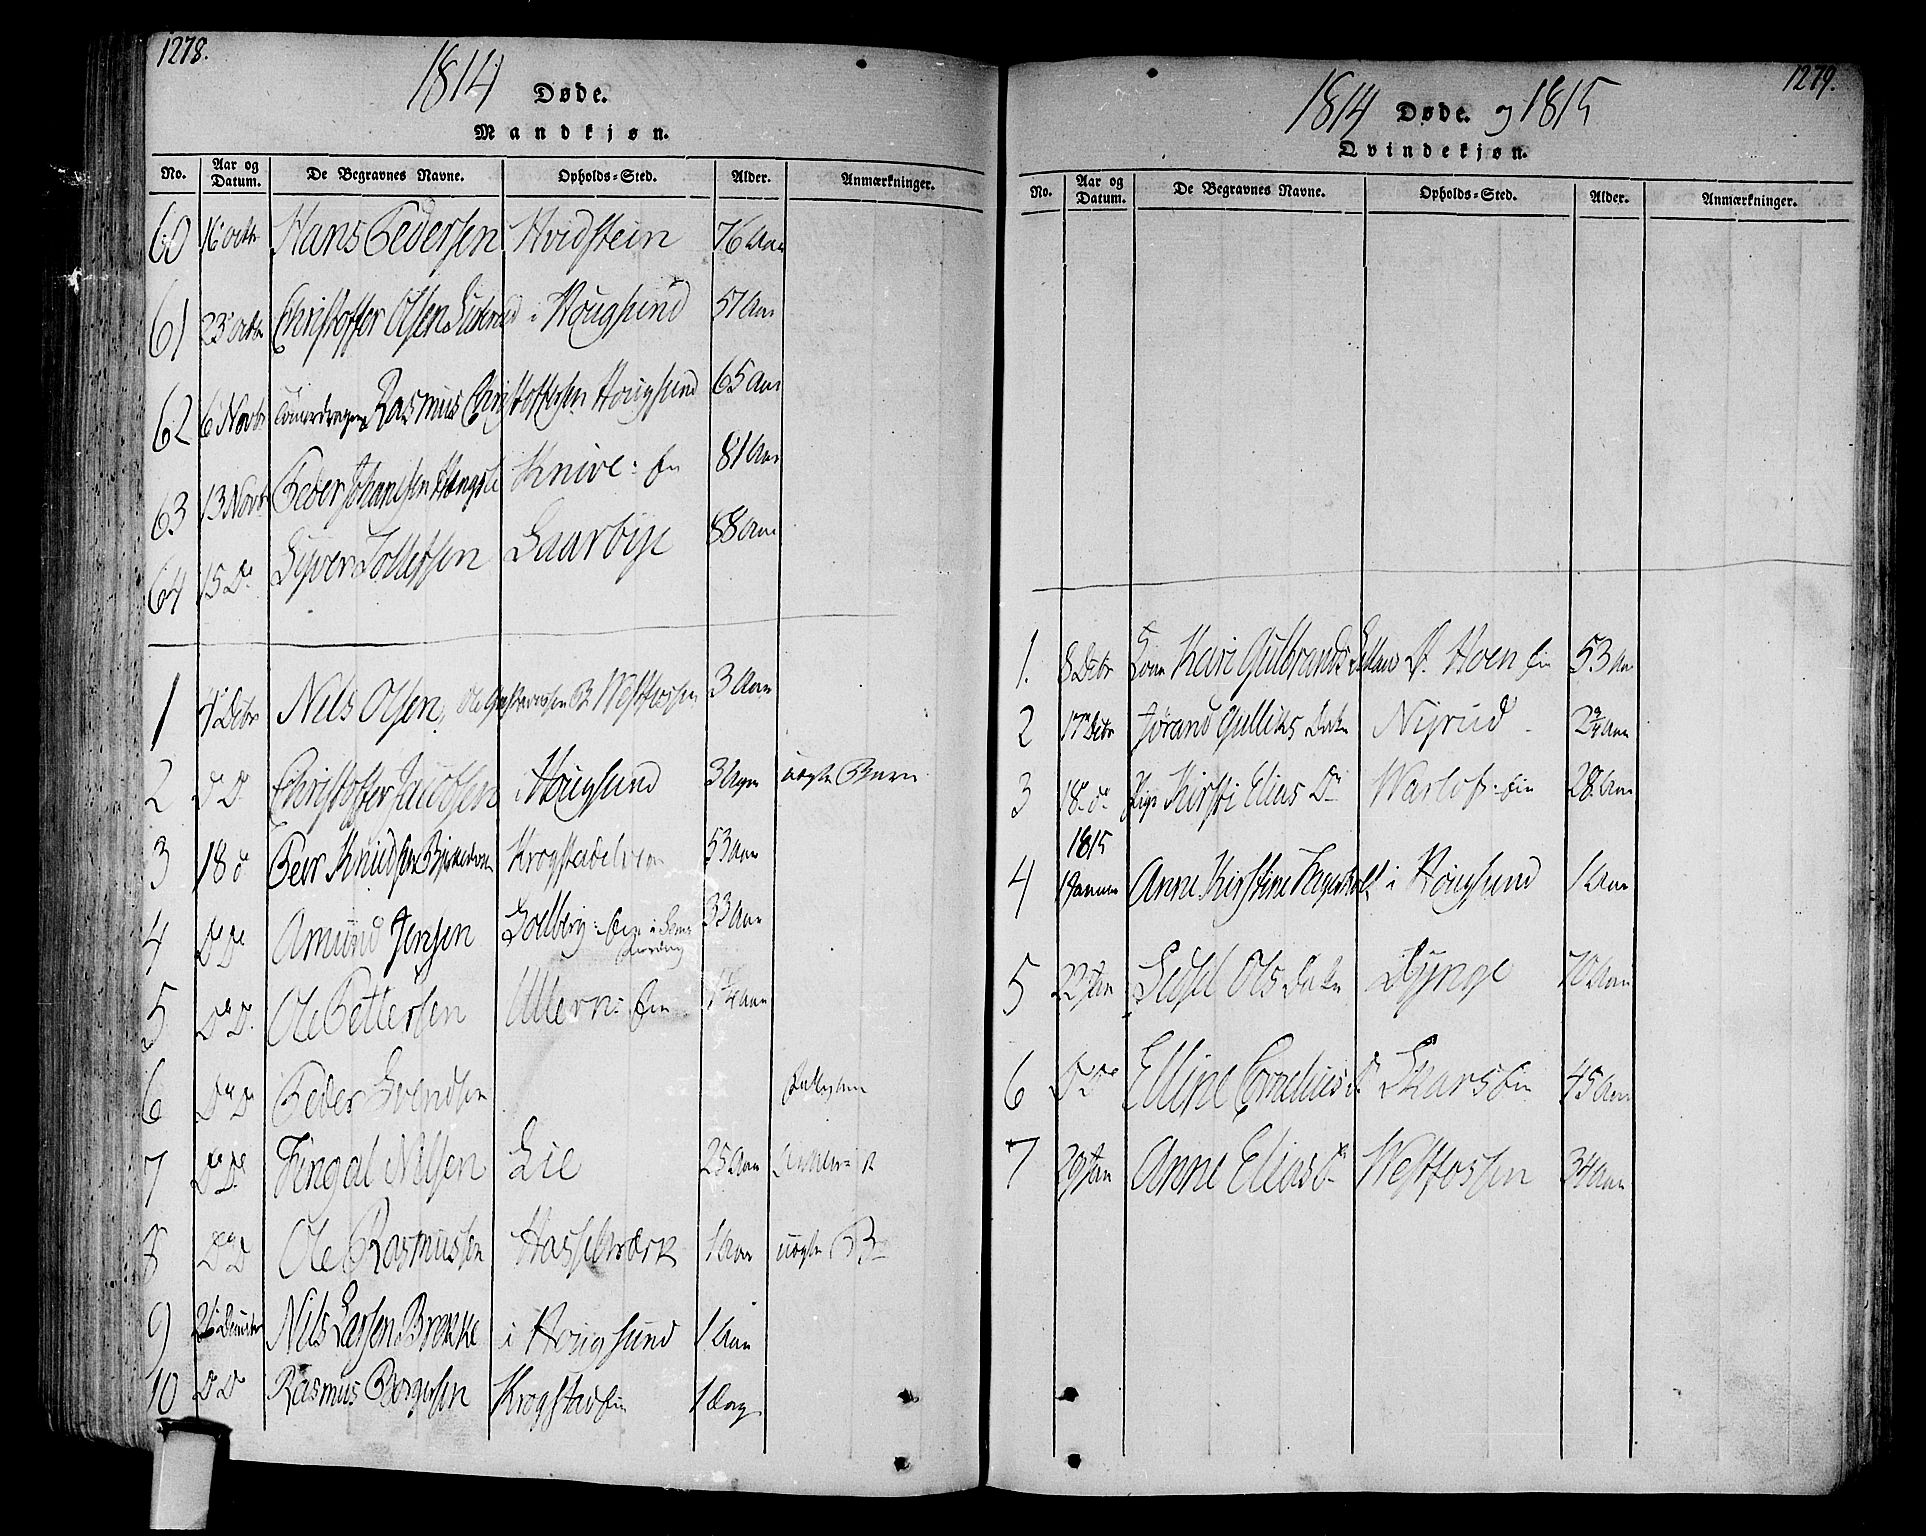 1278.
1814 Døde.
Mandkjøn.
No. Aar og Datum. De Begravnes Navne. Opholds=Sted. Alder. Anmærkninger.
60 16 octbr Hans Pedersen Hvidstein 76 Aar
61 23 octbr Christopher Olsen i Hougsund 57 Aar
62 6 Novbr Rasmus Christoffersen Hougsund 65 Aar
63 13 Novbr Peder Johannesen Knive: Ein 81 Aar
64 15 Do Syver Tollefsen Gaarbye 88 Aar
1 4 Decbr Nils Olsen, Westfossen 3 Aar
2 Do Do Christoffer Jacobsen i Hougsund 3 Uger uægte Barn
3 18 do Peer Knudsen Krogstadelven 53 Aar
4 Do Do Amund Jensen Solberg: Ein i 33 Aar
5 Do Do Ole Pettersen Ullern: Ein 1/4 Aar
6 Do Do Peder Svendsen
7 Do Do Fingal Nilsen Lie 25 Aar
8 Do Do Ole Rasmussen Hasselwærk 1 Aar uægte B
9 26 December Nils Larsen Brekke i Hougsund 1 Aar
10 Do Do Rasmus Borgersen Krogstad Ein 1 Dag
1279.
1814 Døde. og 1815
Qvindekjøn.
No. Aar og Datum. De Begravnes Navne. Opholds=Sted. Alder. Anmærkninger.
1. 8 Decbr Kone Kari Gulbrands Datter Hoen Ein 53 Aar
2 17 Decbr Jørand Gulliks Datter Nyrud 2 3/4 Aar
3 18 do Pige Kirsti Elias Dr Warlo: Ein 28 Aar
1815
4 1 Januar Anne Kirstine i Hougsund 1 Aar
5 22 Jan Sidsel Ols Datter Dynge 70 Aar
6 Do Do Elline Cornelius d. Skars Ein 45 Aar
7 29 Jan Anne Elias d. Westfossen 34 Aar